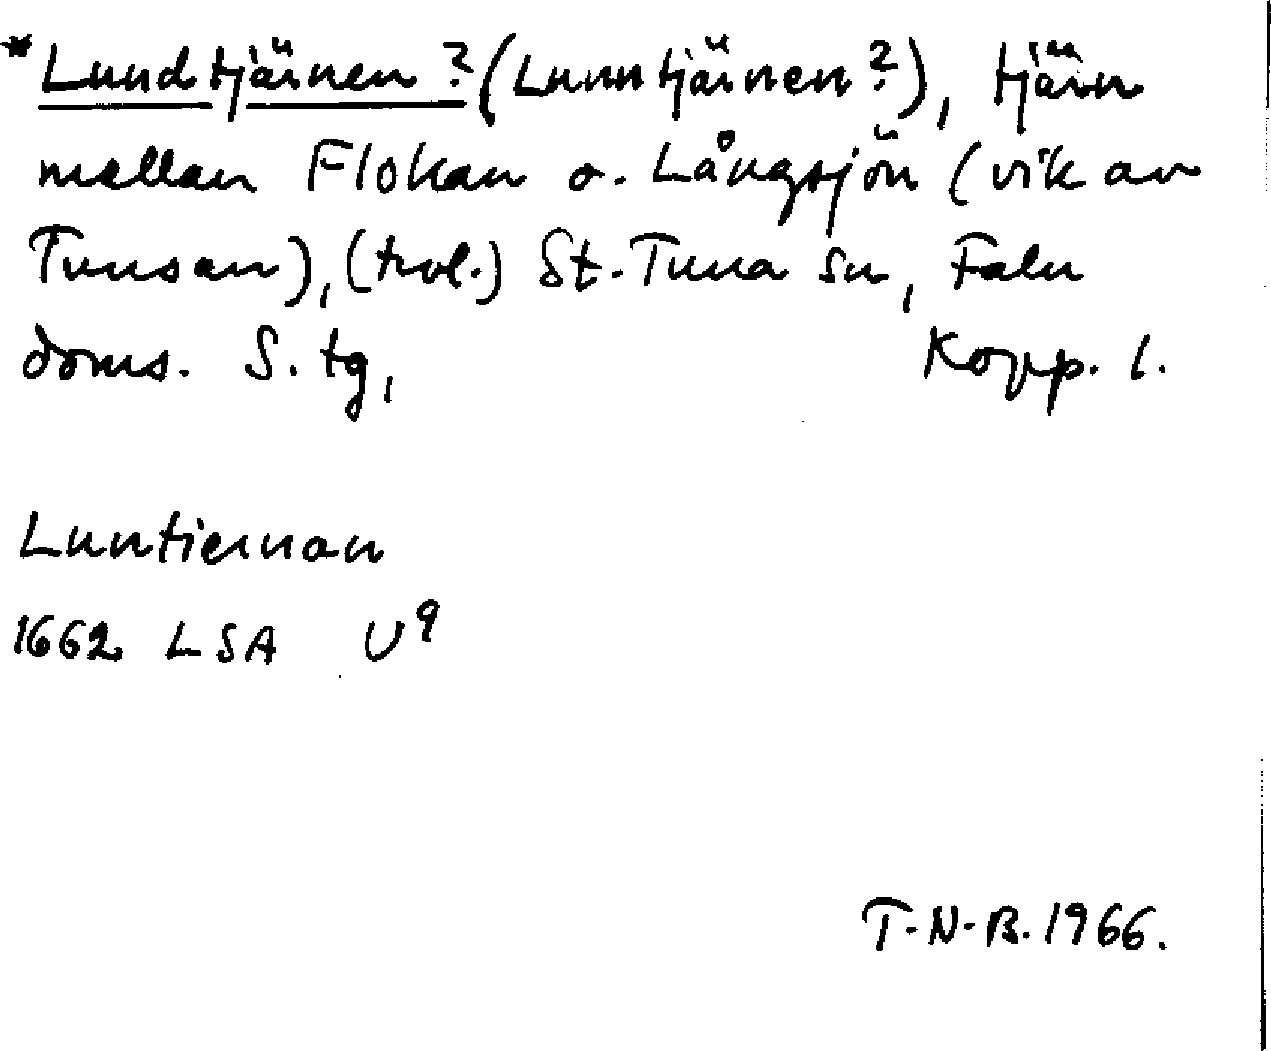 *Lundtjärnen? (Lunntjärnen?), tjärn
mellan Flokan o. Långsjön (vik av
Tunsan), (trol.) St. Tuna sn, Falu
doms. S. tg, Kopp. l.
Luntiernan
1662 LSA U9
T-N-B. 1966.